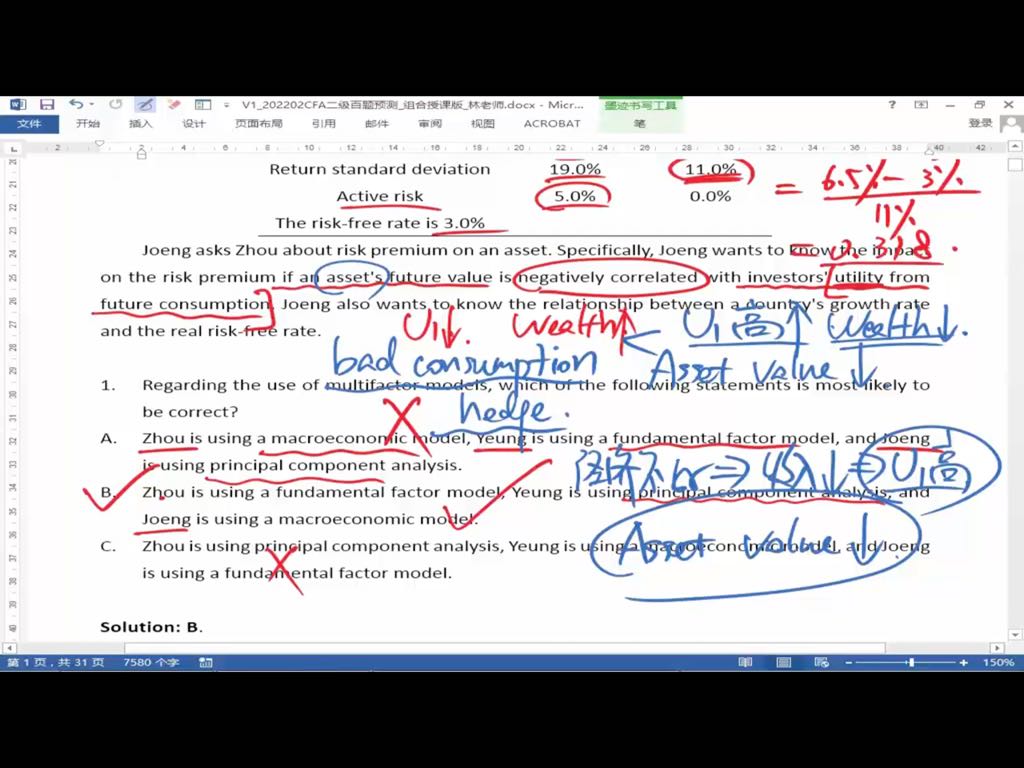 V1_202202CFA二级百题预测_组合授课版_林老师.docx - Micr...
墨迹书写工具
文件 开始 插入 设计 页面布局 引用 邮件 审阅 视图 ACROBAT 笔 登录
2 2 4 6 8 10 12 14 16 18 20 22 24 26 28 30 32 34 36 38 40 42
Return standard deviation 19.0% 11.0%
Active risk 5.0% 0.0%
The risk-free rate is 3.0%
= 6.5% - 3%
11%
= 0.318.
Joeng asks Zhou about risk premium on an asset. Specifically, Joeng wants to know the impact
on the risk premium if an asset's future value is negatively correlated with investors' utility from
future consumption. Joeng also wants to know the relationship between a country's growth rate
and the real risk-free rate.
U₁↓. Wealth↑ U₁高↑ Wealth↓.
bad consumption Asset value↓.
hedge.
1. Regarding the use of multifactor models, which of the following statements is most likely to
be correct?
A. Zhou is using a macroeconomic model, Yeung is using a fundamental factor model, and Joeng
is using principal component analysis.
经济不好⇒收入↓⇒U₁高
B. Zhou is using a fundamental factor model, Yeung is using principal component analysis, and
Joeng is using a macroeconomic model.
Asset value↓.
C. Zhou is using principal component analysis, Yeung is using a macroeconomic model, and Joeng
is using a fundamental factor model.
Solution: B.
第 1 页，共 31 页 7580 个字 150%